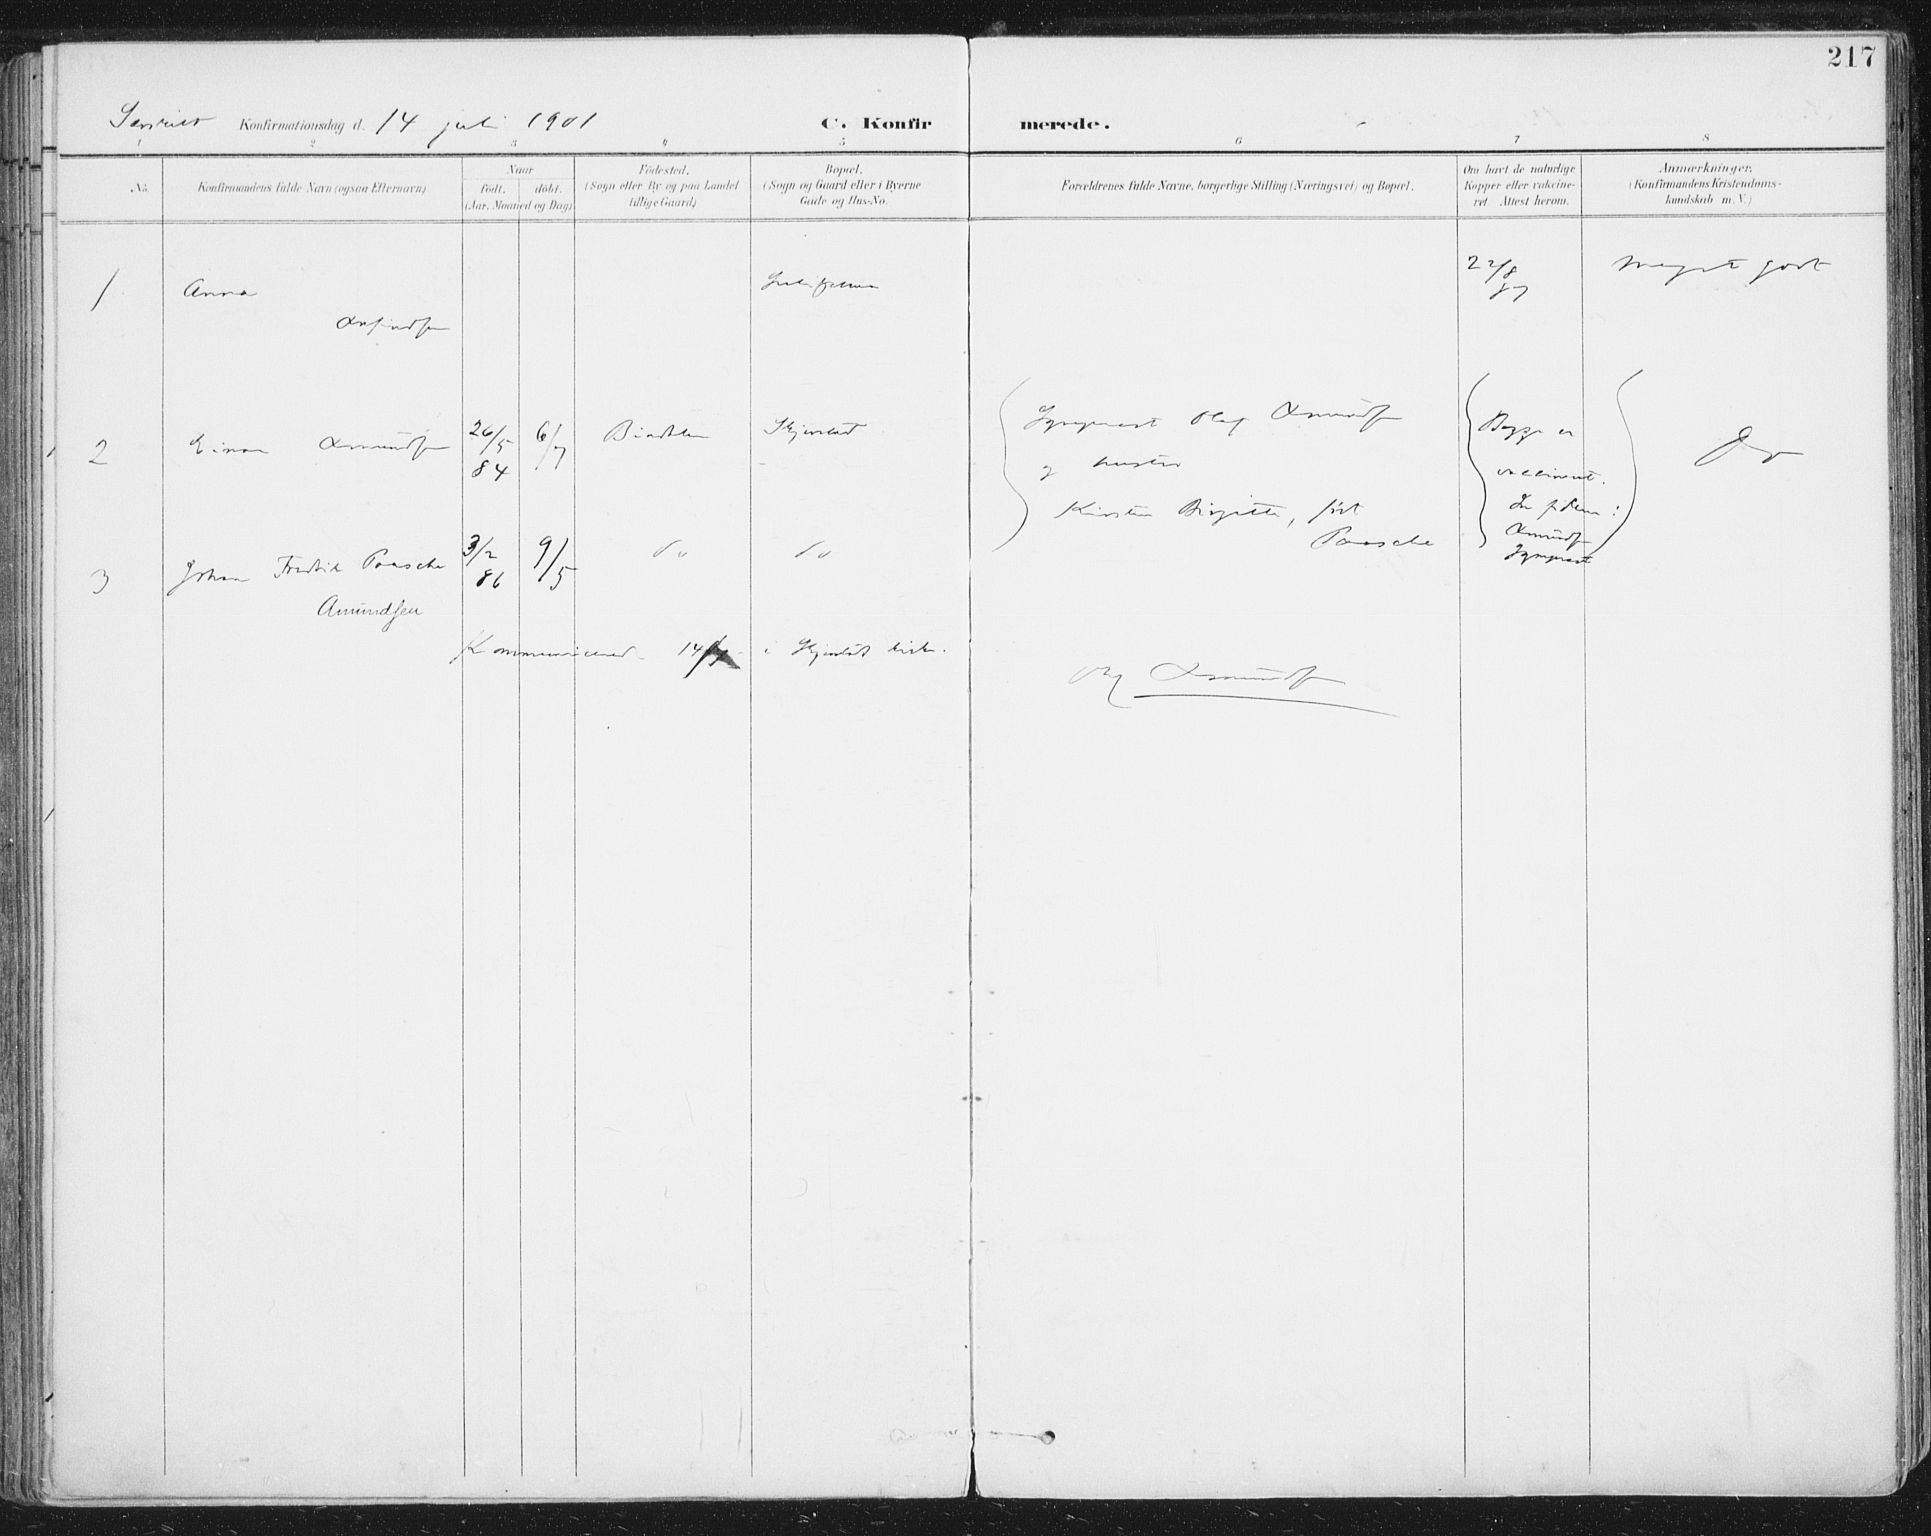 217
Konfirmationsdag d. 14 juli 1901 C. Konfirmerede.
1 2 3 4 5 6 7 8
No.
Konfirmandens fulde Navn (ogsaa Efternavn)
Naar
födt. döbt.
(Aar, Maaned og Dag)
Födested.
(Sogn eller By og paa Landet
tillige Gaard)
Bopæl.
(Sogn og Gaard eller i Byerne
Gade og Hus-No.
Forældrenes fulde Navne, borgerlige Stilling (Næringsvei) og Bopæl.
Om havt de naturlige
Kopper eller vakcine-
ret. Attest herom.
Anmærkninger.
(Konfirmandens Kristendoms-
kundskab m. V.)
1 Anna 22/8 87 Meget godt
2 Einar Amundsen 26/5 84 6/7 Skjerstad
Sogneprest Olaf Amundsen
og hustru
Kirsten Birgitte, født
Paasche
Begge er
vaccineret.
In fidem:
Amundsen
Sogneprest
Do
3 Johan Fredrik Paasche 3/2 86 9/5 do do
Amundsen
Kommunicered 14/7 i Skjerstad kirke.
Amundsen